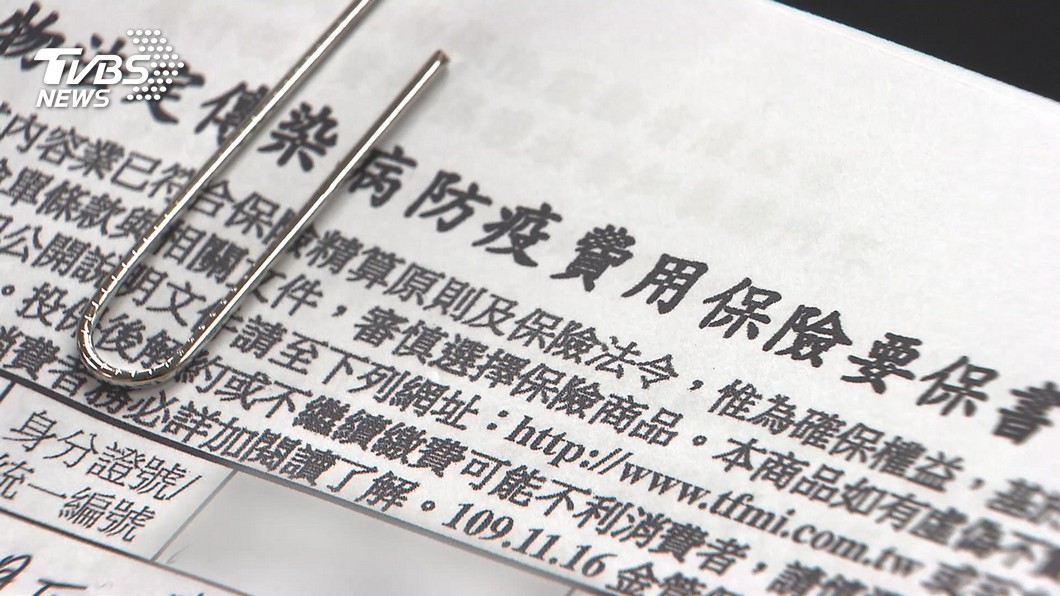 TVBS
NEWS
物法定傳染病防疫費用保險要保書
內容業已符合保險精算原則及保險法令，惟為確保權益，基
單條款與相關文件，審慎選擇保險商品。本商品如有虛偽不
公開說明文件請至下列網址：http://www.tfmi.com.tw
。投保後解約或不繼續繳費可能不利消費者，請
消費者務必詳加閱讀了解。109.11.16 金管
身分證號/
統一編號